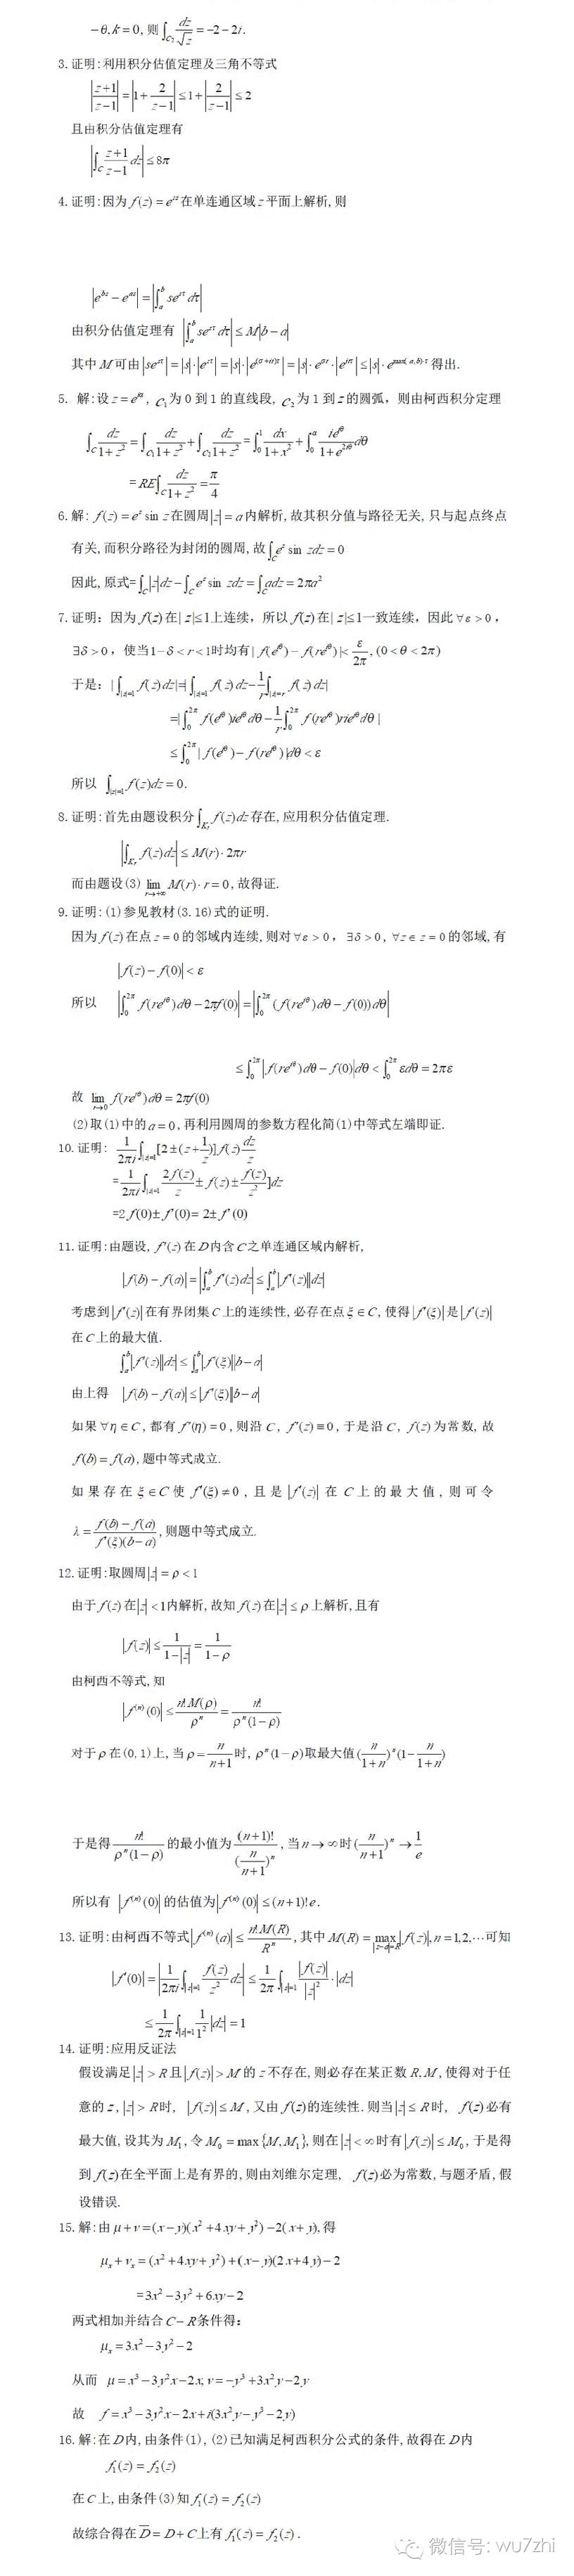 −θ, k=0, 则 ∫_{C₂} dz/√z = −2−2i.
3.证明:利用积分估值定理及三角不等式
|(z+1)/(z−1)| = |1+2/(z−1)| ≤ 1+|2/(z−1)| ≤ 2
且由积分估值定理有
|∫_C (z+1)/(z−1) dz| ≤ 8π
4.证明:因为 f(z)=e^{sz} 在单连通区域 z 平面上解析,则
|e^{bs}−e^{as}| = |∫_a^b se^{sτ}dτ|
由积分估值定理有 |∫_a^b se^{sτ}dτ| ≤ M|b−a|
其中 M 可由 |se^{sτ}|=|s|·|e^{sτ}|=|s|·|e^{(σ+it)τ}|=|s|·e^{στ}·|e^{itτ}|≤|s|·e^{max(a,b)·τ} 得出.
5. 解:设 z=e^{iα}, c₁为 0 到 1 的直线段, c₂为 1 到 z 的圆弧, 则由柯西积分定理
∫_C dz/(1+z²) = ∫_{C₁} dz/(1+z²) + ∫_{C₂} dz/(1+z²) = ∫_0^1 dx/(1+x²) + ∫_0^α ie^{iθ}/(1+e^{2iθ}) dθ
= RE∫_C dz/(1+z²) = π/4
6.解: f(z)=e^z sin z 在圆周|z|=a 内解析,故其积分值与路径无关,只与起点终点
有关,而积分路径为封闭的圆周,故∫_C e^z sin zdz=0
因此,原式=∫_C|z|dz−∫_C e^z sin zdz=∫_C adz=2πa²
7.证明: 因为 f(z) 在| z|≤1上连续, 所以 f(z) 在| z|≤1一致连续, 因此 ∀ε>0,
∃δ>0, 使当1−δ<r<1时均有| f(e^{iθ})−f(re^{iθ})|<ε/2π,(0<θ<2π)
于是: |∫_{|z|=1} f(z)dz|=|∫_{|z|=1} f(z)dz−(1/r)∫_{|z|=r} f(z)dz|
=|∫_0^{2π} f(e^{iθ})ie^{iθ}dθ−(1/r)∫_0^{2π} f(re^{iθ})rie^{iθ}dθ |
≤∫_0^{2π}| f(e^{iθ})−f(re^{iθ})|dθ<ε
所以 ∫_{|z|=1} f(z)dz=0.
8.证明:首先由题设积分∫_{Kr} f(z)dz存在,应用积分估值定理.
|∫_{Kr} f(z)dz| ≤ M(r)·2πr
而由题设(3) lim_{r→+∞} M(r)·r=0,故得证.
9.证明:(1)参见教材(3.16)式的证明.
因为 f(z) 在点 z=0 的邻域内连续,则对 ∀ε>0, ∃δ>0, ∀z∈z=0 的邻域,有
|f(z)−f(0)|<ε
所以 |∫_0^{2π} f(re^{iθ})dθ−2πf(0)|=|∫_0^{2π}(f(re^{iθ})dθ−f(0))dθ|
≤∫_0^{2π}|f(re^{iθ})dθ−f(0)|dθ<∫_0^{2π}εdθ=2πε
故 lim_{r→0} f(re^{iθ})dθ=2πf(0)
(2)取(1)中的 a=0,再利用圆周的参数方程化简(1)中等式左端即证.
10.证明: (1/2πi)∫_{|z|=1}[2±(z+1/z)]f(z)dz/z
=(1/2πi)∫_{|z|=1} 2f(z)/z±f(z)±f(z)/z²]dz
=2f(0)±f'(0)=2±f'(0)
11.证明:由题设, f'(z) 在 D 内含 C 之单连通区域内解析,
|f(b)−f(a)|=|∫_a^b f'(z)dz|≤∫_a^b|f'(z)||dz|
考虑到|f'(z)|在有界闭集 C 上的连续性,必存在点 ξ∈C,使得|f'(ξ)|是|f'(z)|
在 C 上的最大值.
∫_a^b|f'(z)||dz|≤∫_a^b|f'(ξ)||b−a|
由上得 |f(b)−f(a)|≤|f'(ξ)||b−a|
如果 ∀η∈C,都有 f'(η)=0,则沿 C, f'(z)≡0,于是沿 C, f(z) 为常数,故
f(b)=f(a),题中等式成立.
如果存在 ξ∈C 使 f'(ξ)≠0, 且是 |f'(z)| 在 C 上的最大值, 则可令
λ=(f(b)−f(a))/(f'(ξ)(b−a)),则题中等式成立.
12.证明:取圆周|z|=ρ<1
由于 f(z) 在|z|<1内解析,故知 f(z)在|z|≤ρ 上解析,且有
|f(z)|≤1/(1−|z|)=1/(1−ρ)
由柯西不等式,知
|f^{(n)}(0)|≤n!M(ρ)/ρ^n=n!/(ρ^n(1−ρ))
对于 ρ 在(0,1)上,当 ρ=n/(n+1) 时, ρ^n(1−ρ)取最大值(n/(1+n))^n(1−n/(1+n))
于是得 n!/(ρ^n(1−ρ)) 的最小值为 (n+1)!/(n/(n+1))^n,当 n→∞ 时(n/(n+1))^n→1/e
所以有 |f^{(n)}(0)| 的估值为|f^{(n)}(0)|≤(n+1)!e.
13.证明:由柯西不等式|f^{(n)}(a)|≤n!M(R)/R^n,其中 M(R)=max_{|z−a|=R}|f(z)|,n=1,2,⋯可知
|f'(0)|=|(1/2πi)∫_{|z|=1} f(z)/z² dz|≤(1/2π)∫_{|z|=1} |f(z)|/|z|²·|dz|
≤(1/2π)∫_{|z|=1} 1/1²|dz|=1
14.证明:应用反证法
假设满足|z|>R且|f(z)|>M 的 z 不存在,则必存在某正数 R,M,使得对于任
意的 z,|z|>R时, |f(z)|≤M,又由 f(z)的连续性.则当|z|≤R时, f(z)必有
最大值,设其为M₁,令M₀=max{M,M₁},则在|z|<∞时有|f(z)|≤M₀,于是得
到 f(z)在全平面上是有界的,则由刘维尔定理, f(z)必为常数,与题矛盾,假
设错误.
15.解:由 μ+v=(x−y)(x²+4xy+y²)−2(x+y),得
μ_x+v_x=(x²+4xy+y²)+(x−y)(2x+4y)−2
=3x²−3y²+6xy−2
两式相加并结合 C−R 条件得:
μ_x=3x²−3y²−2
从而 μ=x³−3y²x−2x; v=−y³+3x²y−2y
故 f=x³−3y²x−2x+i(3x²y−y³−2y)
16.解:在 D 内,由条件(1),(2)已知满足柯西积分公式的条件,故得在 D 内
f₁(z)=f₂(z)
在 C 上,由条件(3)知 f₁(z)=f₂(z)
故综合得在 D̄=D+C 上有 f₁(z)=f₂(z).
微信号: wu7zhi